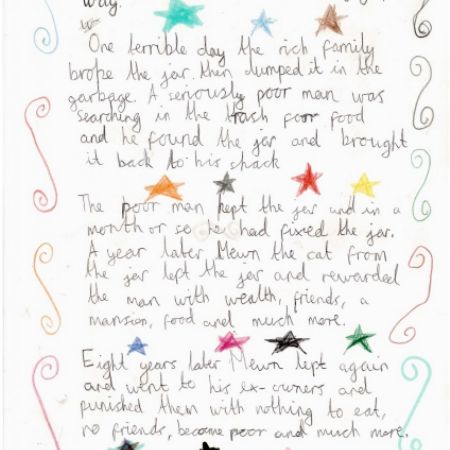 way.
One terrible day the rich family
broke the jar then dumped it in the
garbage. A seriously poor man was
searching in the trash foor food
and he found the jar and brought
it back to his shack
The poor man kept the jar and in a
month or so he had fixed the jar.
A year later Mewn the cat from
the jar left the jar and rewarded
the man with wealth, friends, a
mansion, food and much more.
Eight years later Mewn left again
and went to his ex-owners and
punished them with nothing to eat,
no friends, became poor and much more.